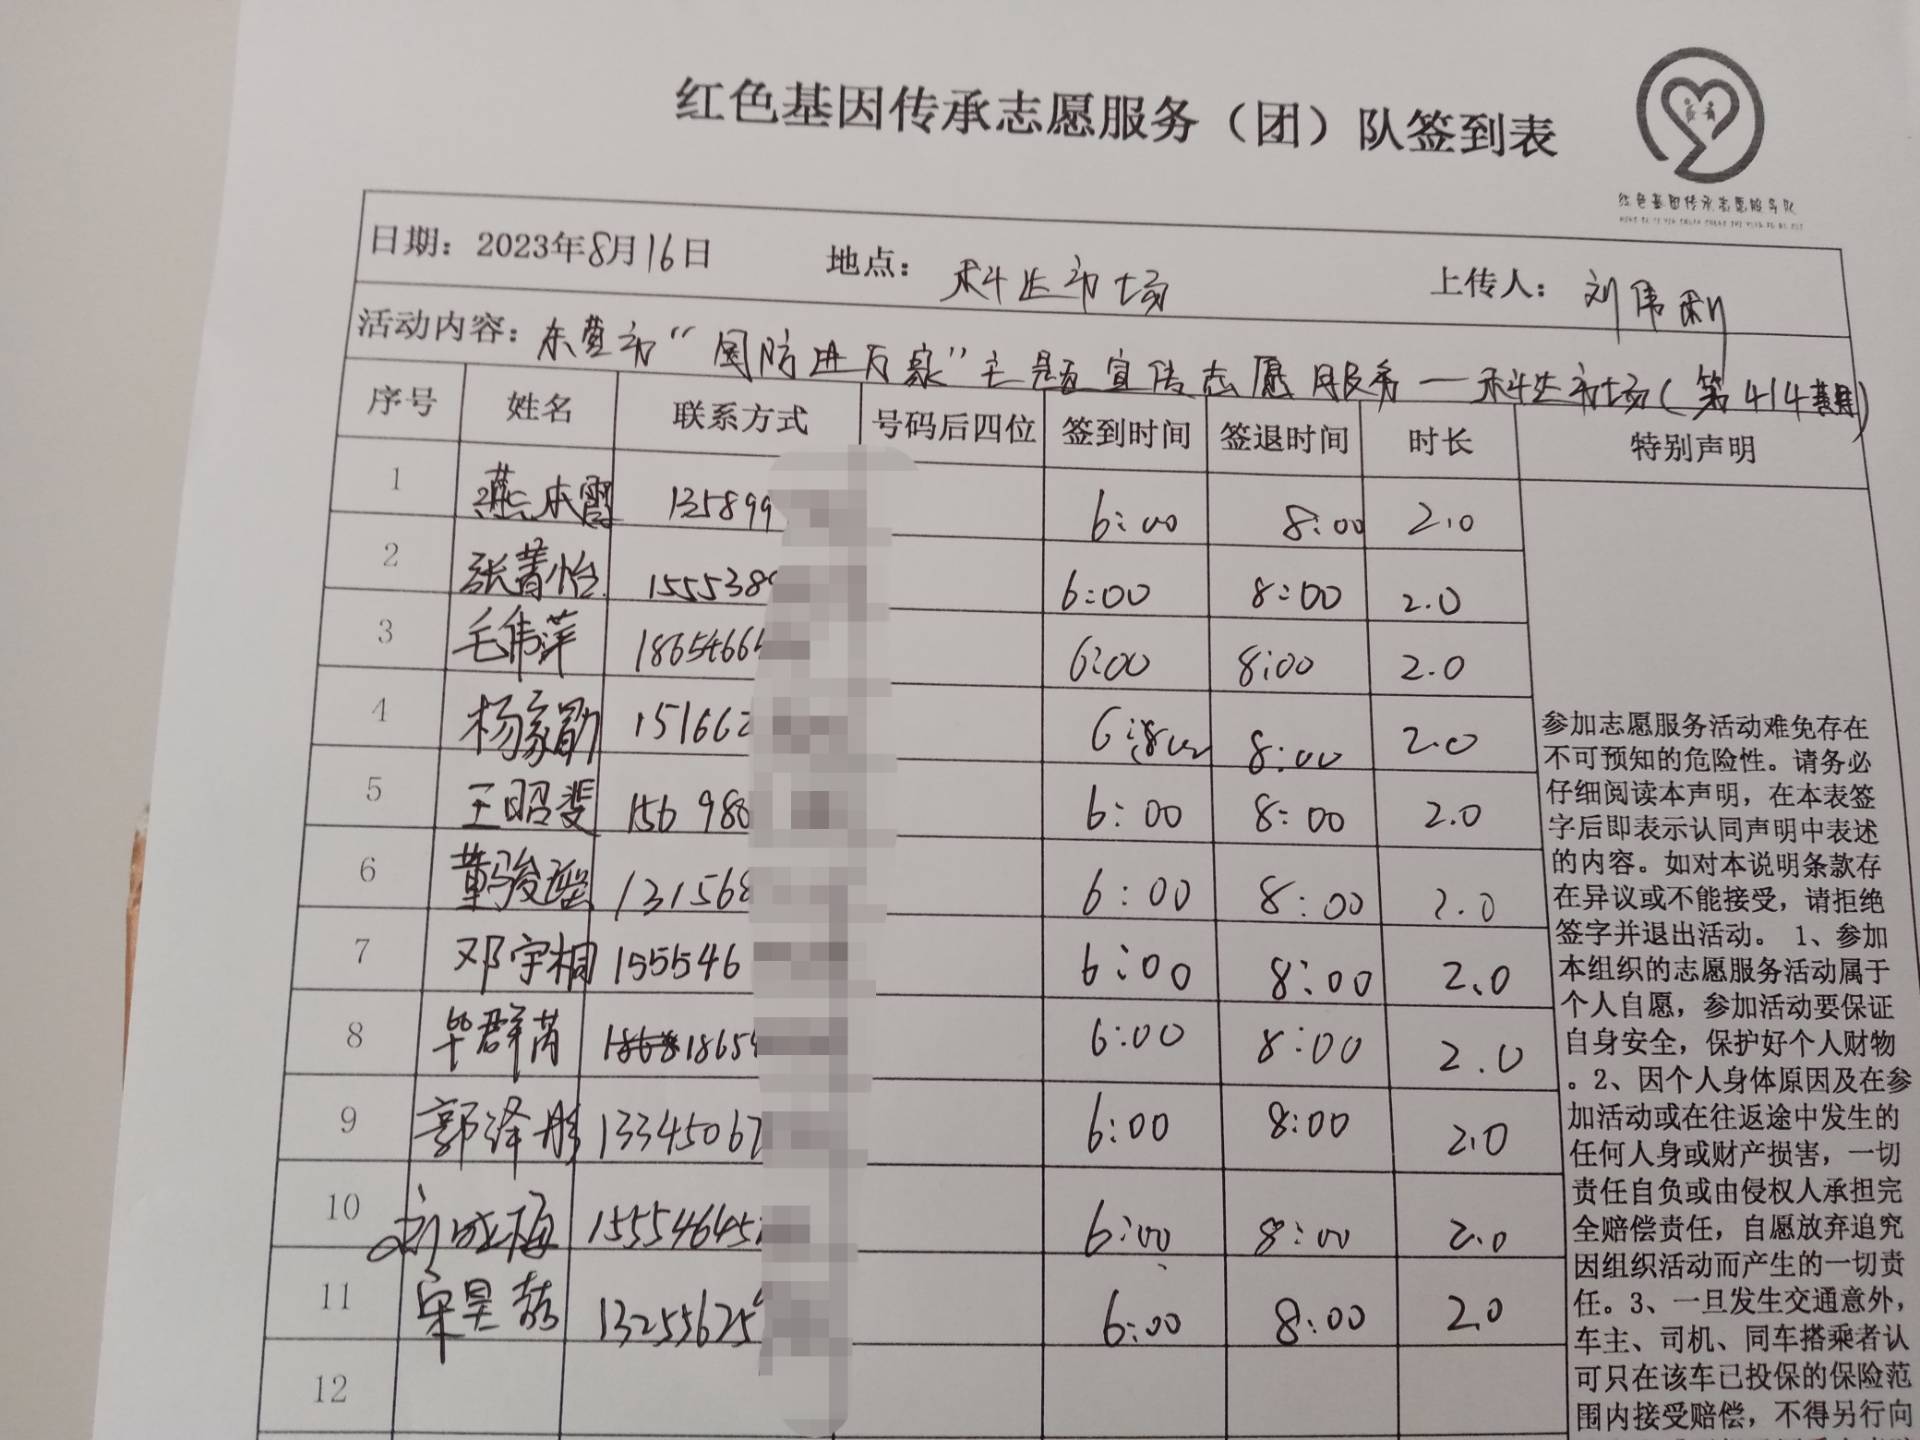 红色基因传承志愿服务（团）队签到表
红色基因传承志愿服务队
日期：2023年8月16日 地点：科达市场 上传人：刘伟利
活动内容：东营市“国防进万家”主题宣传志愿服务—科达市场(第414期)
序号 姓名 联系方式 号码后四位 签到时间 签退时间 时长 特别声明
1 燕本霞 135899 6:00 8:00 2.0
2 张菁怡 1555389 6:00 8:00 2.0
3 毛伟萍 18654665 6:00 8:00 2.0
4 杨家勋 151662 6: 8:00 2.0
5 王昭斐 156 980 6:00 8:00 2.0
6 董骏瑶 131568 6:00 8:00 2.0
7 邓宇桐 155546 6:00 8:00 2.0
8 毕群芮 18654 6:00 8:00 2.0
9 郭泽彤 13345067 6:00 8:00 2.0
10 刘成梅 155546452 6:00 8:00 2.0
11 宋昊喆 132556259 6:00 8:00 2.0
12
参加志愿服务活动难免存在
不可预知的危险性。请务必
仔细阅读本声明，在本表签
字后即表示认同声明中表述
的内容。如对本说明条款存
在异议或不能接受，请拒绝
签字并退出活动。 1、参加
本组织的志愿服务活动属于
个人自愿，参加活动要保证
自身安全，保护好个人财物
。2、因个人身体原因及在参
加活动或在往返途中发生的
任何人身或财产损害，一切
责任自负或由侵权人承担完
全赔偿责任，自愿放弃追究
因组织活动而产生的一切责
任。3、一旦发生交通意外，
车主、司机、同车搭乘者认
可只在该车已投保的保险范
围内接受赔偿，不得另行向